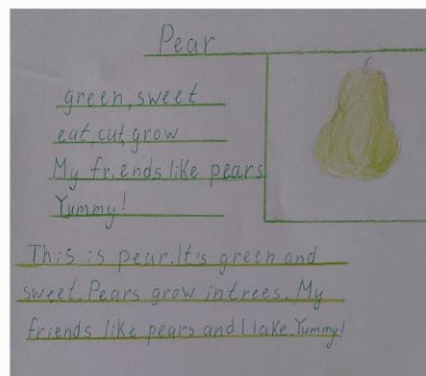 Pear
green, sweet
eat, cut, grow
My friends like pears
Yummy!
This is pear. It's green and
sweet. Pears grow in trees. My
friends like pears and I lake. Yummy!